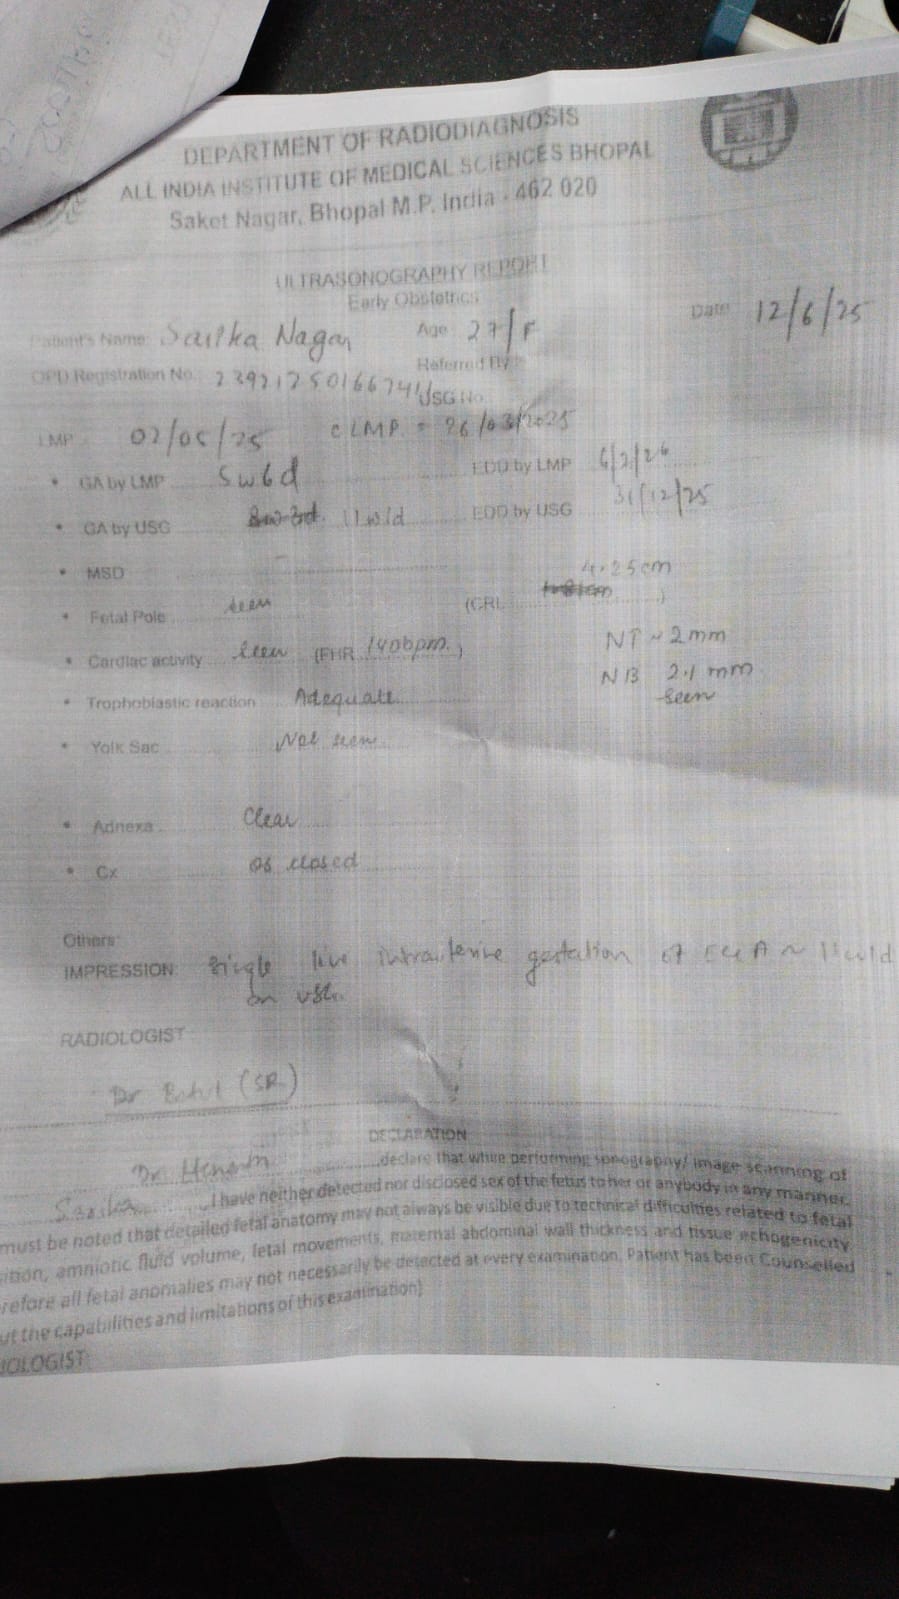 DEPARTMENT OF RADIODIAGNOSIS
ALL INDIA INSTITUTE OF MEDICAL SCIENCES BHOPAL
Saket Nagar, Bhopal M.P. India - 462 020
ULTRASONOGRAPHY REPORT
Early Obstetrics
Date 12/6/25
Patient's Name: Nagar Age 27/F
OPD Registration No.: Referred By
USG No.
LMP 02/05/25 CLMP = 26/03/2025
• GA by LMP 5w6d EDD by LMP 6/2/26
• GA by USG 8w3d 11w1d EDD by USG 31/12/25
• MSD -
4.25cm
• Fetal Pole seen (CRL )
• Cardiac activity seen (FHR 140bpm) NT ~ 2mm
NB 2.1 mm
seen
• Trophoblastic reaction Adequate
• Yolk Sac Not seen
• Adnexa Clear
• Cx os closed
Others:
IMPRESSION: Single live intrauterine gestation of ~ 11w1d
on USG.
RADIOLOGIST
Dr (SR)
DECLARATION
Dr declare that while performing sonography/ image scanning of
I have neither detected nor disclosed sex of the fetus to her or anybody in any manner.
must be noted that detailed fetal anatomy may not always be visible due to technical difficulties related to fetal
ition, amniotic fluid volume, fetal movements, maternal abdominal wall thickness and tissue echogenicity
refore all fetal anomalies may not necessarily be detected at every examination. Patient has been Counselled
ut the capabilities and limitations of this examination)
IOLOGIST